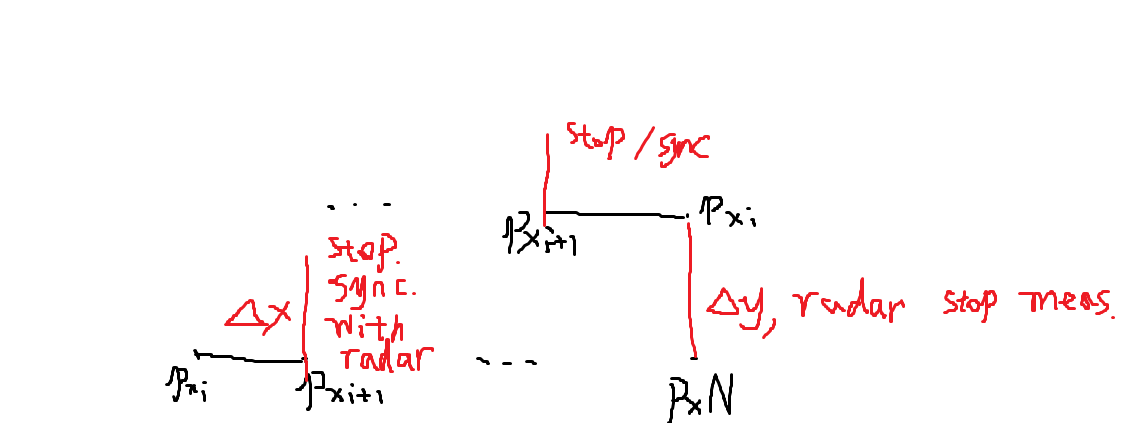 stop/sync
...
Pxi+1
Pxi
stop.
sync.
with
radar
Δx
Δy, radar stop meas.
Pxi
Pxi+1
...
PxN